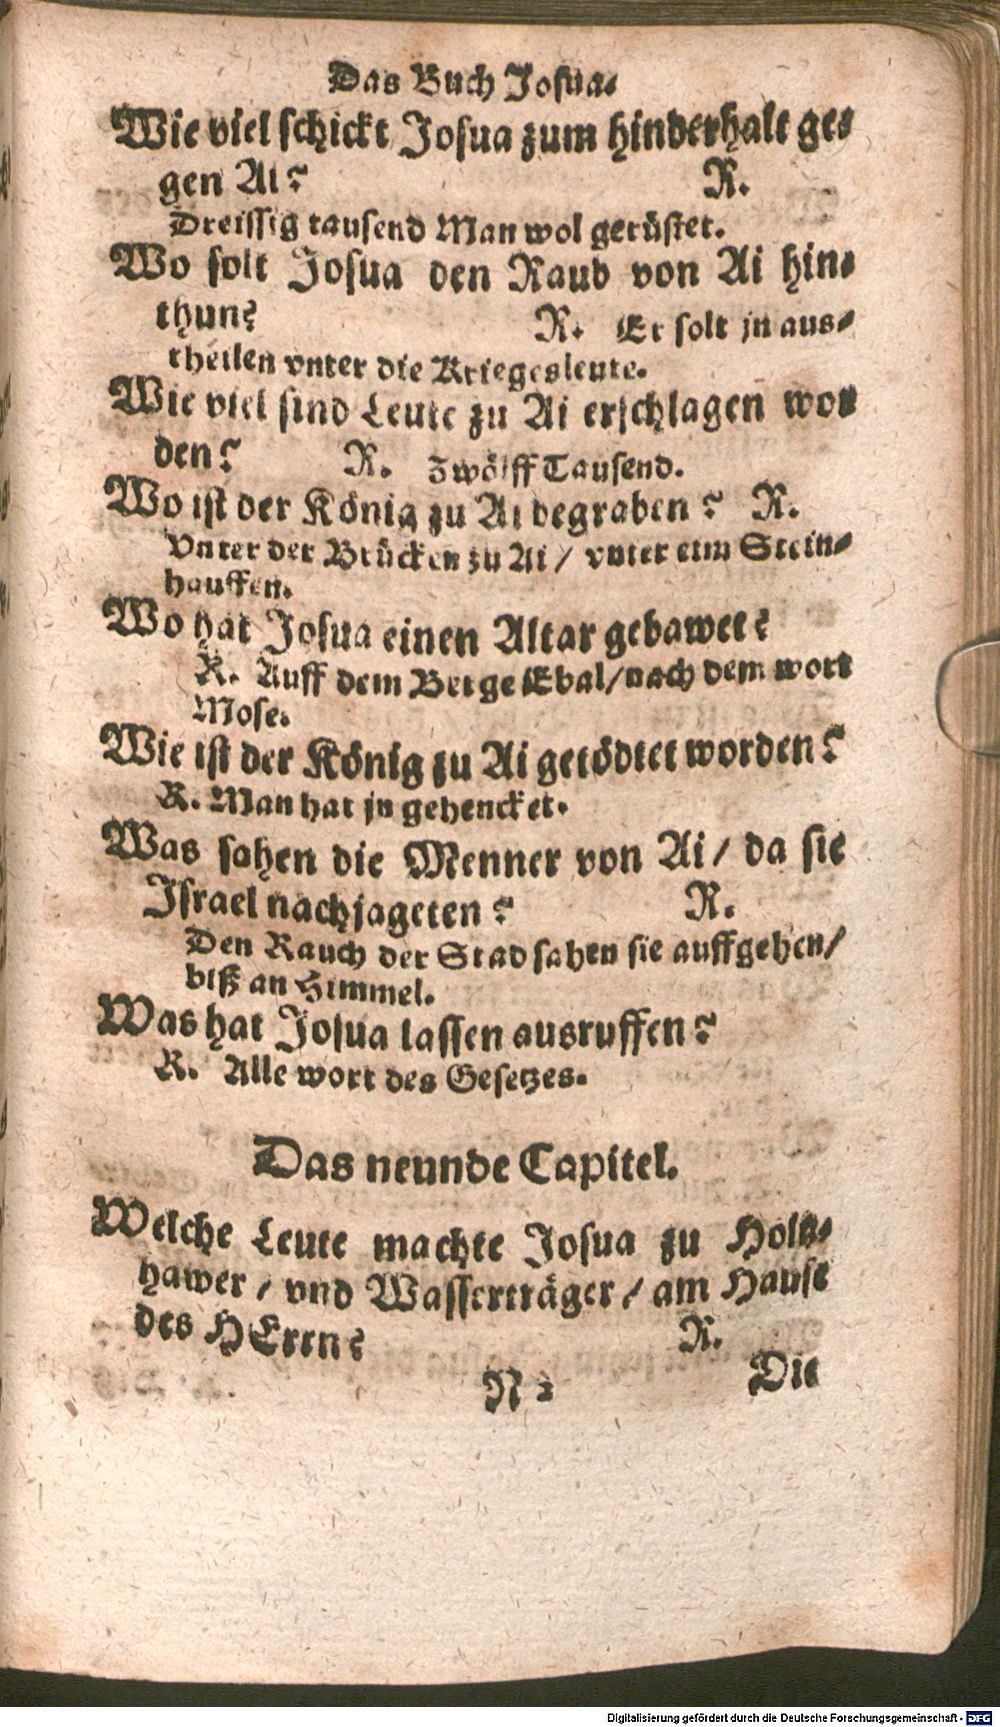 Das Buch Josua.
Wie viel schickt Josua zum hinderhalt ge⸗
gen Ai? R.
Dreissig tausend Man wol gerüstet.
Wo solt Josua den Raub von Ai hin⸗
thun? R. Er solt jn aus⸗
theilen vnter die Kriegesleute.
Wie viel sind Leute zu Ai erschlagen wor
den? R. Zwölff Tausend.
Wo ist der König zu Ai begraben? R.
Vnter der Brücken zu Ai / vnter eim Stein⸗
hauffen.
Wo hat Josua einen Altar gebawet?
R. Auff dem Berge Ebal / nach dem wort
Mose.
Wie ist der König zu Ai getödtet worden?
R. Man hat jn gehencket.
Was sahen die Menner von Ai / da sie
Israel nachjageten? R.
Den Rauch der Stad sahen sie auffgehen /
biß an Himmel.
Was hat Josua lassen ausruffen?
R. Alle wort des Gesetzes.
Das neunde Capitel.
Welche Leute machte Josua zu Holtz⸗
hawer / vnd Wasserträger / am Hause
des HErrn? R.
N 2 Die
Digitalisierung gefördert durch die Deutsche Forschungsgemeinschaft - DFG